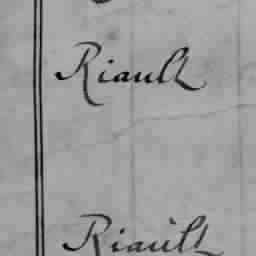 Riault
Riault